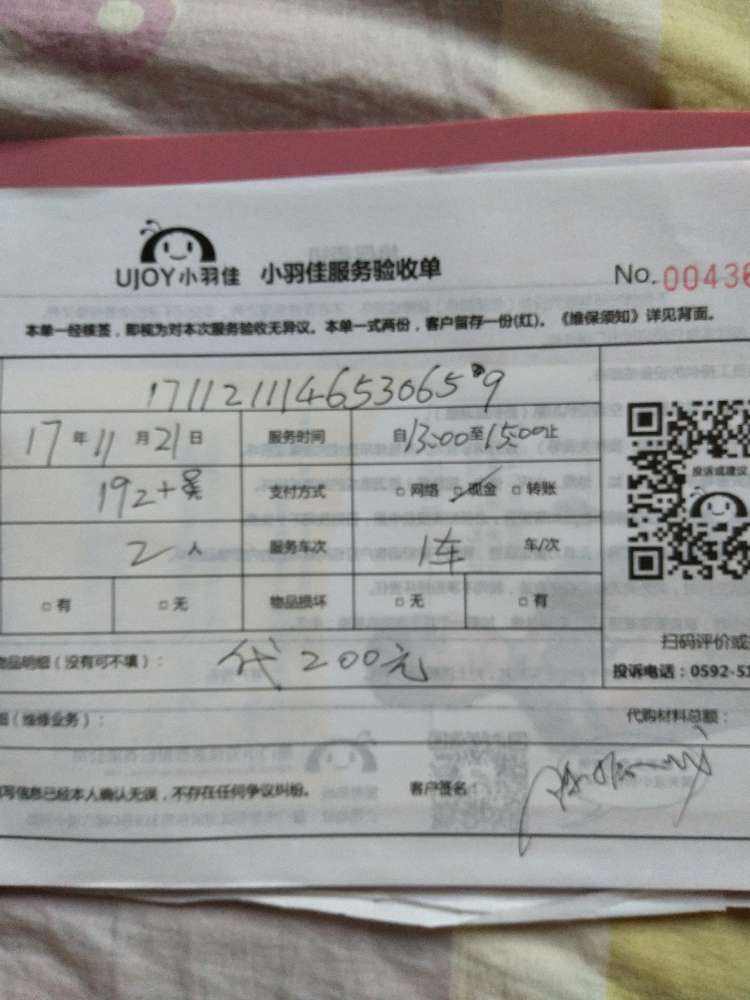 UJOY小羽佳 小羽佳服务验收单 No.00436
本单一经核签，即视为对本次服务验收无异议。本单一式两份，客户留存一份(红)。《维保须知》详见背面。
1711211146530659
17年11月21日 服务时间 自13:00至15:00止
投诉或建议
192+ 支付方式 □网络 □现金 □转账
2人 服务车次 1车 车/次
□有 □无 物品损坏 □无 □有
扫码评价或
品明细（没有可不填）： 代200元
投诉电话：0592-51
（维修业务）： 代购材料总额：
写信息已经本人确认无误，不存在任何争议纠纷。 客户签名：